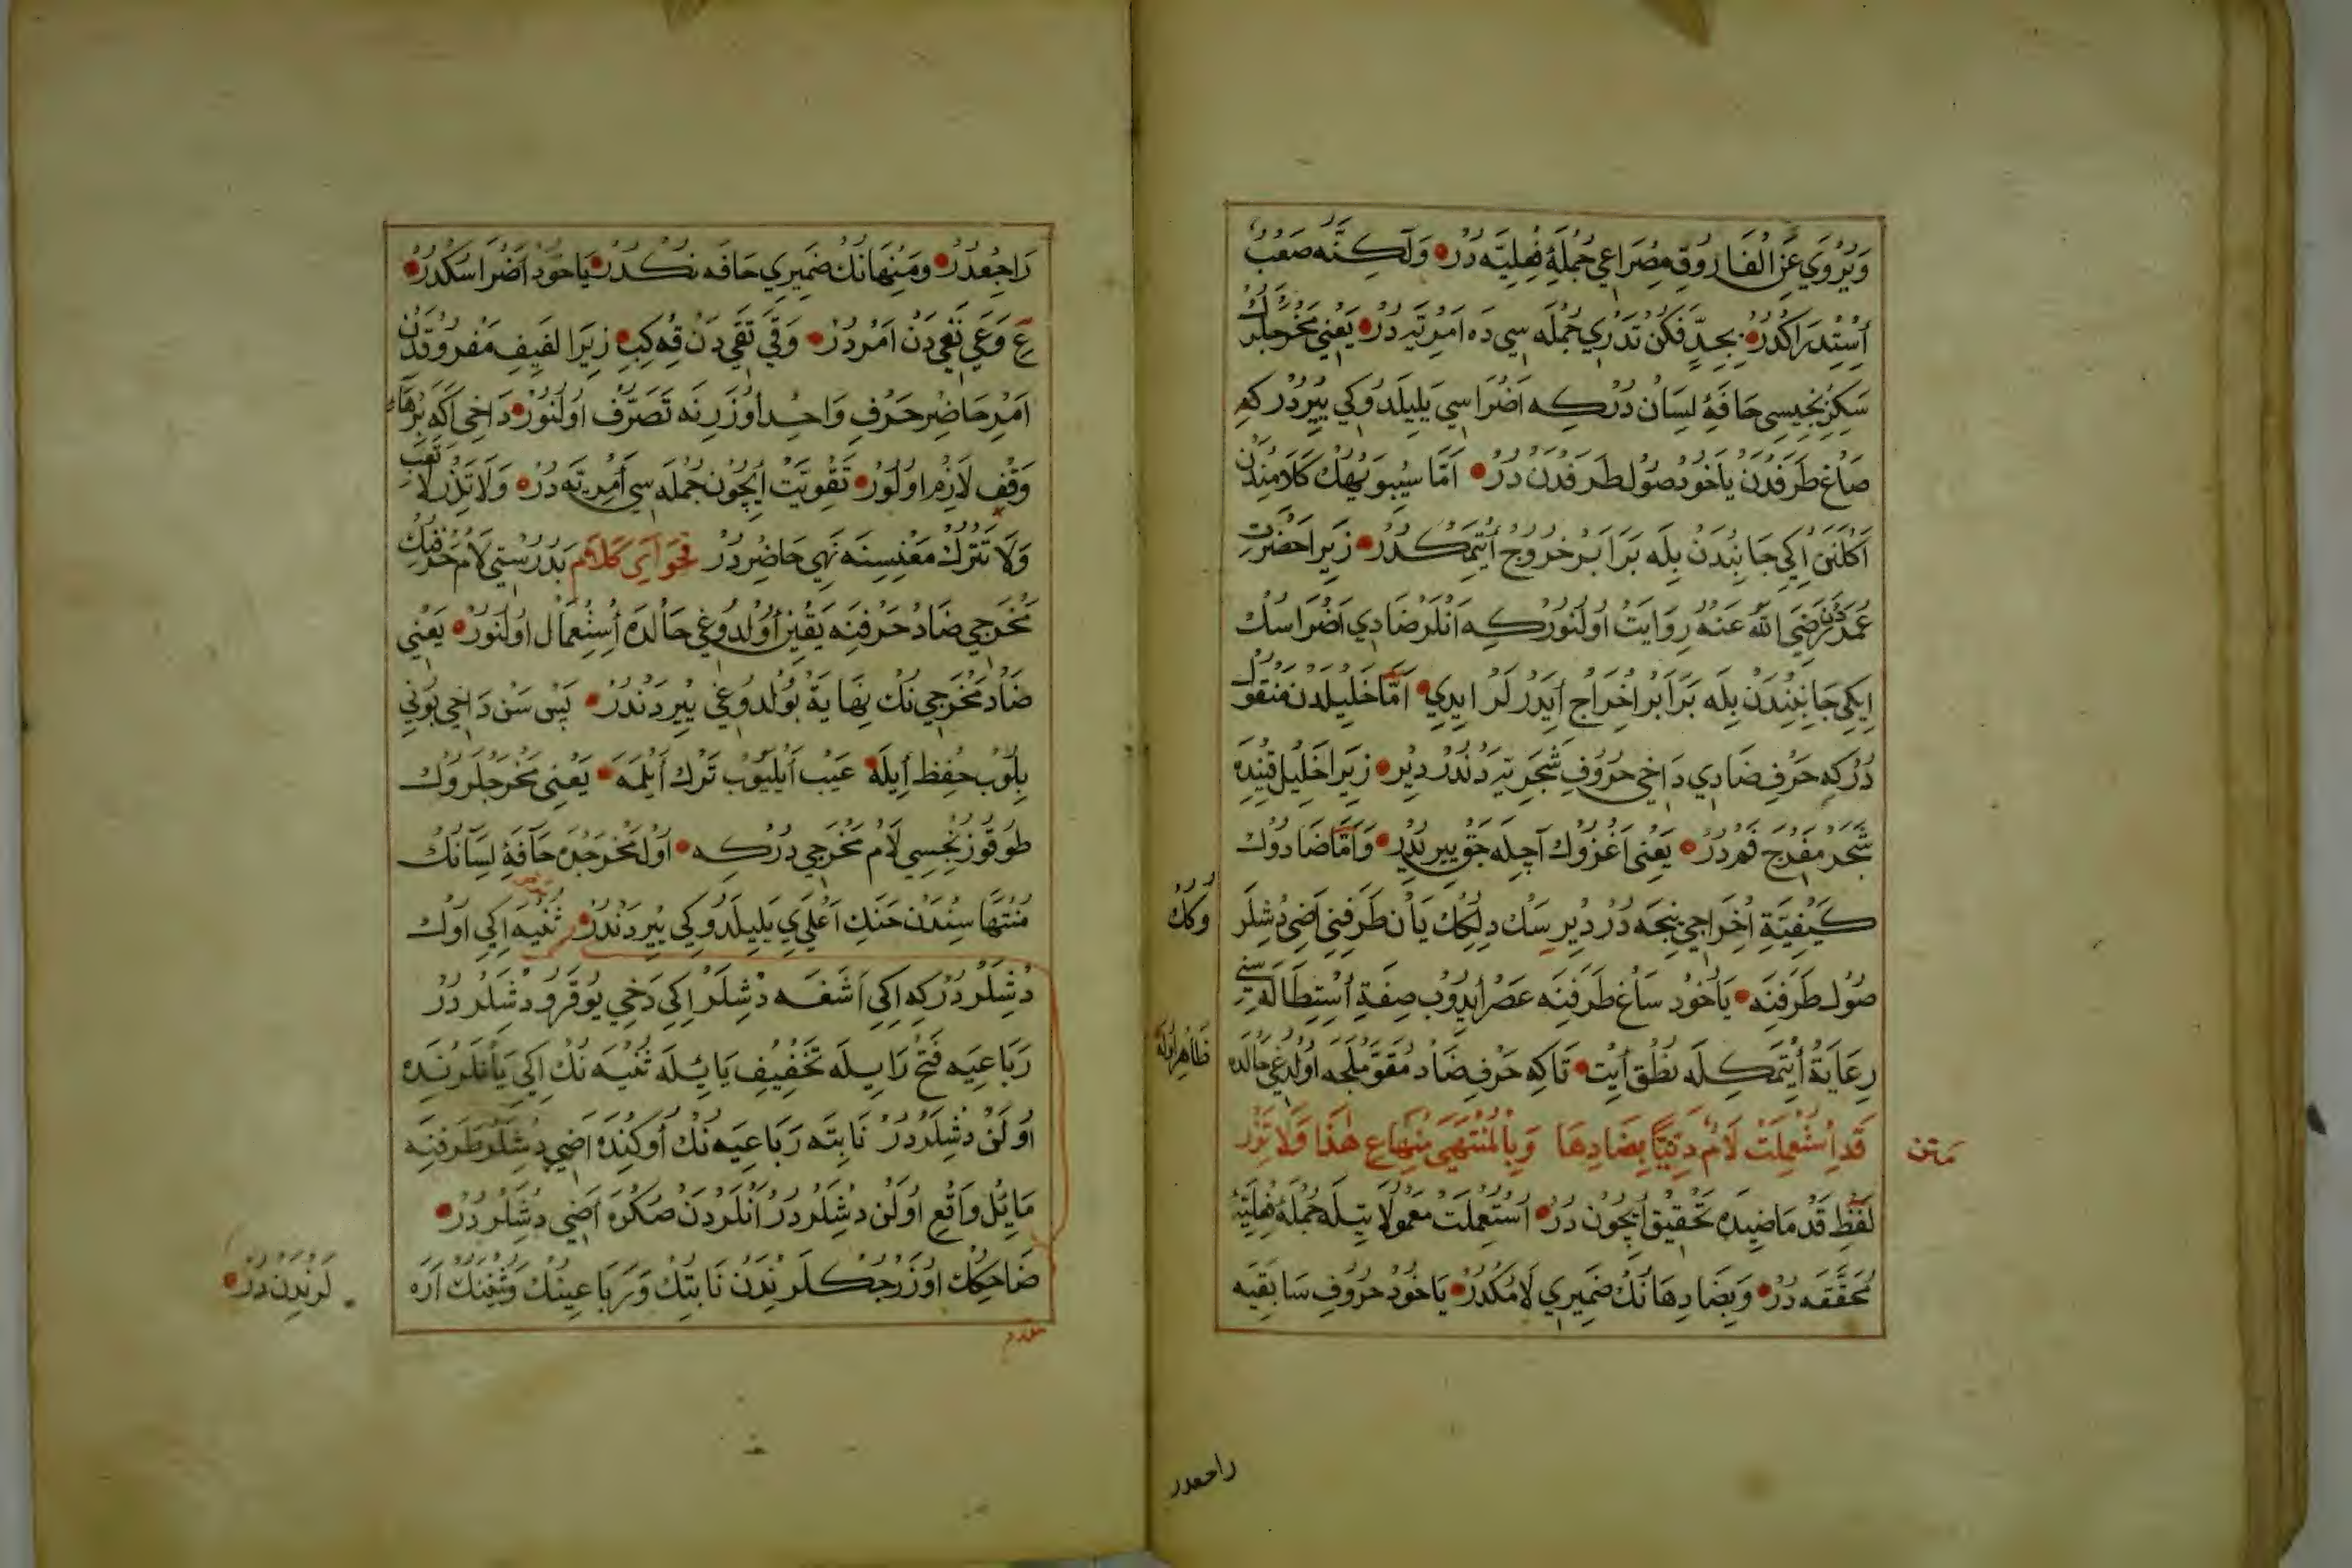 وَيُرْوَي عَنِ الْفَارُوقِ مِصْرَاعِي جُمْلَۀِ فِعْلِيَّه دُرْ وَلَكِنَّه صَعْبُ
اُسْتِدْرَاكدُرْ بِجِدٍّ فَكُنْ تَدْرِي جُمْلَه سِي دَه اَمْرِيَّه دُرْ يَعْنِي مَخْرَجْلَرُكْ
سَكِزِنْجِيسِي حَافَۀِ لِسَانْ دُرْكِه اَضْرَاسِي يَلِيلَدُوكِي يِيرْدُرْكِه
صَاغْ طَرَفْدَنْ يَاخُودْ صُولْ طَرَفْدَنْ دُرْ اَمَّا سِيبَوَيْهِكْ كَلَامِنْدَنْ
اَكْلَنَنْ اِكِي جَانِبْدَنْ بِلَه بَرَابَرْ خُرُوجْ اِيْتمَكدُرْ زِيرَا حَضْرَتِ
عُمَرْدَنْ رَضِيَ اللهُ عَنْهُ رِوَايَتْ اُولُنُورْكِه اَنْلَرْ ضَادِي اَضْرَاسُكْ
اِيكِي جَانِبِنْدَنْ بِلَه بَرَابَرْ اِخْرَاجْ اَيْدَرْلَرْ اِيدِي اَمَّا خَلِيلْدَنْ مَنْقُولْ
دُرْكِه حَرْفِ ضَادِي دَاخِي حُرُوفِ شَجَرِيَّه دَنْدُرْ دِيرْ زِيرَا خَلِيلْ قَتِنْدَه
شَجَرْ مَفْرَجِ فَمْدُرْ يَعْنِي اَغْزُوكْ آچِلَه جَقْ يِيرِيدُرْ وَاَمَّا ضَادُوكْ
كَيْفِيَّةِ اِخْرَاجِي نِيجَه دُرْ دِيرِسَكْ دِلِكُكْ يَانْ طَرَفِنِي اَضِي دِشْلَر
وُكُكْ
صُولْ طَرَفِنَه يَاخُودْ سَاغْ طَرَفِنَه عَصْرْ اِيدُوبْ صِفَةِ اُسْتِطَالَه سِنِي
رِعَايَةْ اِيْتمَكلَه نُطْقْ اَيْتْ تَاكِه حَرْفِ ضَادْ مُقَوَّمْلَجَه اُولْدُغِي حَالْدَه
ظَاهِرْ اُولَه
قَدِ اسْتُعْمِلَتْ لَامٌ دِنِيًّا بِضَادِهَا وَبِالْمُنْتَهَى مِنْهَا عِ هٰذَا وَلَا تَذَرْ
مَتن
لَفْظِ قَدْ مَاضِيدَه تَحْقِيقْ اِيچُونْ دُرْ اُسْتُعْمِلَتْ مَعْمُولَاتِيلَه جُمْلَۀِ فِعْلِيَّۀِ
مُحَقَّقَه دُرْ وَبِضَادِهَانُكْ ضَمِيرِي لَامُكدُرْ يَاخُودْ حُرُوفِ سَابِقَيَه
راجعدر
رَاجِعْدُرْ وَمِنْهَانُكْ ضَمِيرِي حَافَه نُكدُرْ يَاخُودْ اَضْرَاسُكدُرْ
عِ وَعَي نَعِي دَنْ اَمْرْدُرْ وَقَي تَقِي دَنْ قِه كِبِي زِيرَا لَفِيفِ مَفْرُوقْدَنْ
اَمْرِ حَاضِرْ حَرْفِ وَاحِدْ اُوزَرِنَه تَصَرُّفْ اُولُنُورْ دَاخِي اَكَه بِرْ هَاءِ
وَقْفْ لَازِمْ اُولُورْ تَقْوِيَتْ اِيچُونْ جُمْلَه سِي اَمْرِيَّه دُرْ وَلَا تَذَرْ لَا تَعِبْ
وَلَا تَتْرُكْ مَعْنِيسِنَه نَهِي حَاضِرْدُرْ فَحْوَاىِ كَلَامْ بَدُرُسْتِي لَامْ حَرْفِنُكْ
مَخْرَجِي ضَادْ حَرْفِنَه يَقِينْ اُولْدُوغِي حَالْدَه اُسْتِعْمَالْ اُولُنُورْ يَعْنِي
ضَادْ مَخْرَجِي نُكْ نِهَايَةْ بُولْدُوغِي يِيرْدَنْدُرْ پَسْ سَنْ دَاخِي بُونِي
بِلُوبْ حِفْظْ اَيْلَه عَيْبْ اَيْلَيُوبْ تَرْكْ اَيْلَمَه يَعْنِي مَخْرَجْلَرُوكْ
طُوقُوزُنْجِيسِي لَامْ مَخْرَجِي دُرْكِه اُولْ مَخْرَجْدَه حَافَۀِ لِسَانُكْ
مُنْتَهَاسِنْدَنْ حَنَكِ اَعْلَايِ يَلِيلَدُوكِي يِيرْدَنْدُرْ ثَنِيَّه اِكِي اُوكْ
دِشْلَرْدُرْكِه اِكِي اَشَغَه دِشْلَرْ اِكِي دَخِي يُوقَرُو دِشْلَرْدُرْ
رَبَاعِيَه فَتْحِ رَايِلَه تَخْفِيفِ يَايِلَه ثَنِيَه نُكْ اِكِي يَانْلَرِنْدَه
اُولَنْ دِشْلَرْدُرْ نَابِتَه رَبَاعِيَه نُكْ اُوكِنْدَه اَضِي دِشْلَرْ طَرَفِنَه
مَايِلْ وَاقِعْ اُولَنْ دِشْلَرْدُرْ اَنْلَرْدَنْ صُكْرَه اَضِي دِشْلَرْدُرْ
ضَاحِكُكْ اُوزَرْجُكلَرِنْدَنْ نَابِتُكْ وَرَبَاعِينُكْ وَثَنِينُكْ اَرَه
لَرِنْدَنْ دُرْ